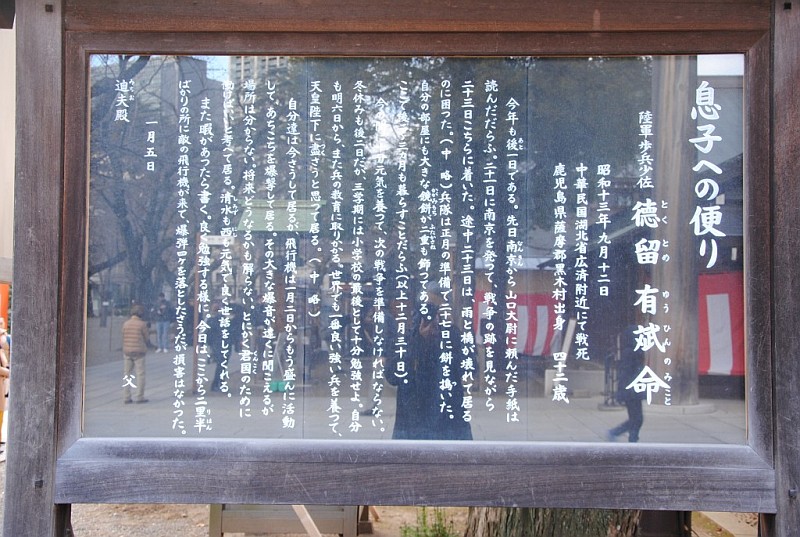 息子への便り
陸軍歩兵少佐 徳留有斌命
とくとめ ゆうひんのみこと
昭和十三年九月十二日
中華民国湖北省広済附近にて戦死
鹿児島県薩摩郡黒木村出身 四十二歳
今年も後一日である。先日南京から山口大尉に頼んだ手紙は
読んだだらふ。二十一日に南京を発つて、戦争の跡を見ながら
二十三日こちらに着いた。途中二十三日は、雨と橋が壊れて居る
のに困つた。(中 略)兵隊は正月の準備で二十七日に餅を搗いた。
自分の部屋にも大きな鏡餅が二重も飾つてある。
ここで後一、二ヶ月も暮らすことだらふ(以上十二月三十日)。
今の 元気を養つて、次の戦争を準備しなければならない。
冬休みも後二日だが、三学期には小学校の最後として十分勉強せよ。自分
も明六日から、また兵の教育に取りかかる。世界でも一番良い強い兵を養つて、
天皇陛下に盡さうと思つて居る。(中 略)
自分達は今さうして居るが、飛行機は一月二日からもう盛んに活動
して、あちこちを爆撃して居る。その大きな爆音が遠くに聞こえるが
場所は分らない。将来どうなるかも解らない。とにかく君国のために
働けばいいと考へて居る。清水も西も元気で良く世話をしてくれる。
また暇があつたら書く。良く勉強する様に。今日は、ここから二里半
ばかりの所に敵の飛行機が来て、爆弾四ヶを落としたさうだが損害はなかつた。
一月五日
父
迪夫殿
みちお